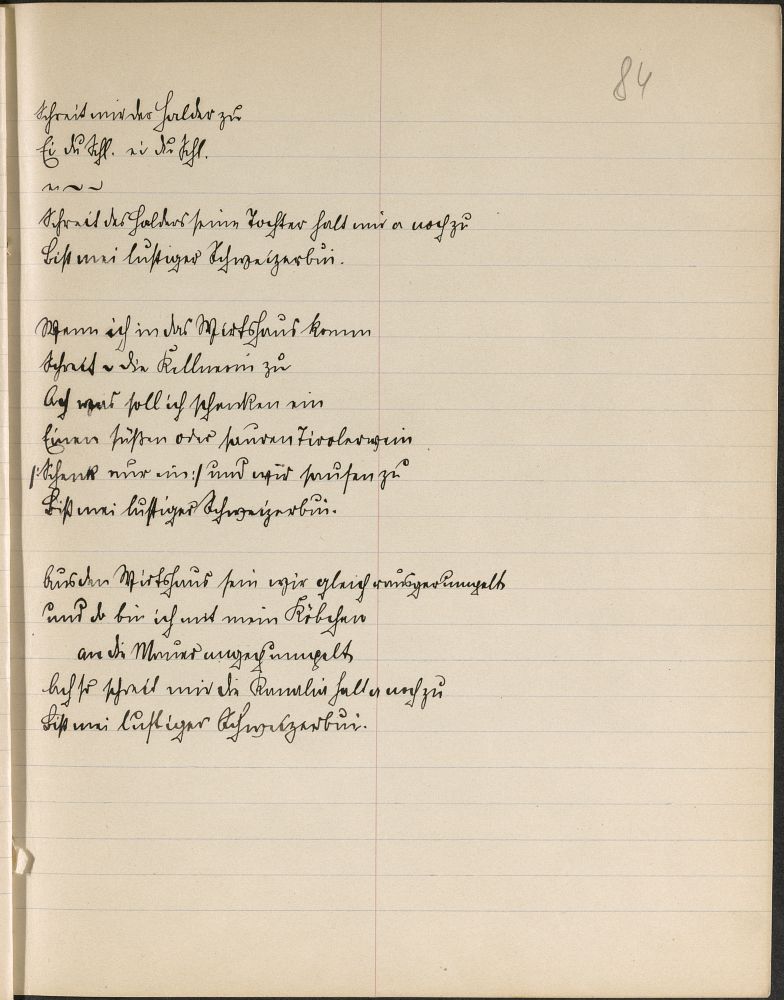 84
Schreit mir der Halder zu
Ei du Schl. ei du Schl.
Schreit des Halders seine Tochter halt mir a noch zu
Bist mei lustiger Schweizerbui.
Wenn ich in das Wirtshaus komm
Schreit die Kellnerin zu
Ach was soll ich schenken ein
Einen süßen oder sauren Tirolerwein
/:Schenk nur ein:/ und wir saufen zu
Bist mei lustiger Schweizerbui.
Aus den Wirtshaus sein wir gleich rausgerumpelt
und do bin ich mit mein Köbchen
an die Mauer angepumpelt
Ach so schreit mir die Kanalia halt a noch zu
Bist mei lustiger Schweizerbui.